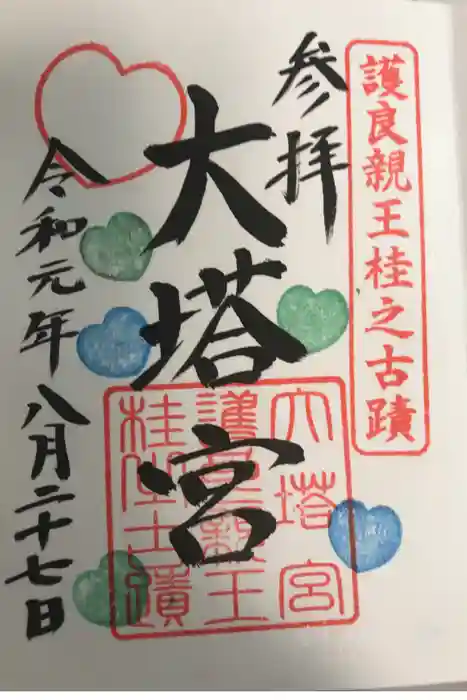 護良親王桂之古蹟
参拝
大塔宮
大塔宮
護良親王
桂之古蹟
令和元年八月二十七日